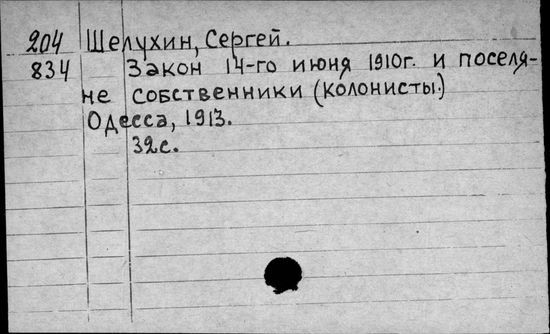 204 Шелухин, Сергей.
834 Закон 14-го июня 1910г. и поселя-
не собственники (колонисты.)
Одесса, 1913.
32с.